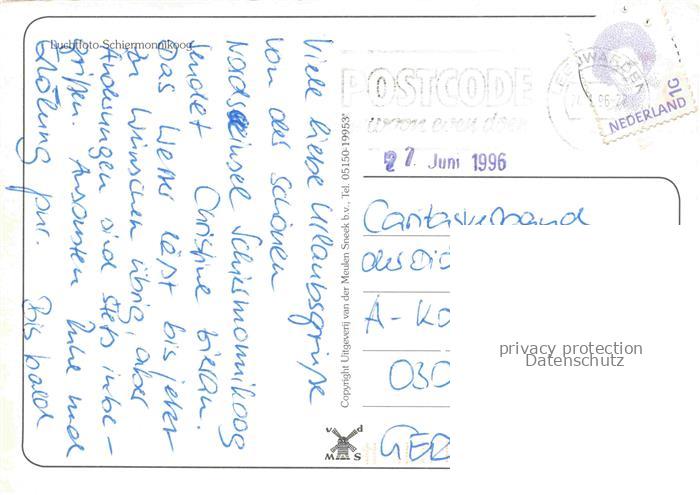 Luchtfoto Schiermonnikoog
Viele liebe Urlaubsgrüße
von der schönen
Nordseeinsel Schiermonnikoog
sendet Christine
Das Wetter läßt bis jetzt
zu Wünschen übrig, aber
Änderungen sind stets inbe-
griffen. Ansonsten Ruhe und
Erholung pur. Bis bald
Copyright Uitgeverij van der Meulen Sneek b.v., Tel. 05150-19953*
vd
MS
POSTCODE
LEEUWARDEN
NEDERLAND
27. Juni 1996
Caritasverband
A-
030
privacy protection
Datenschutz